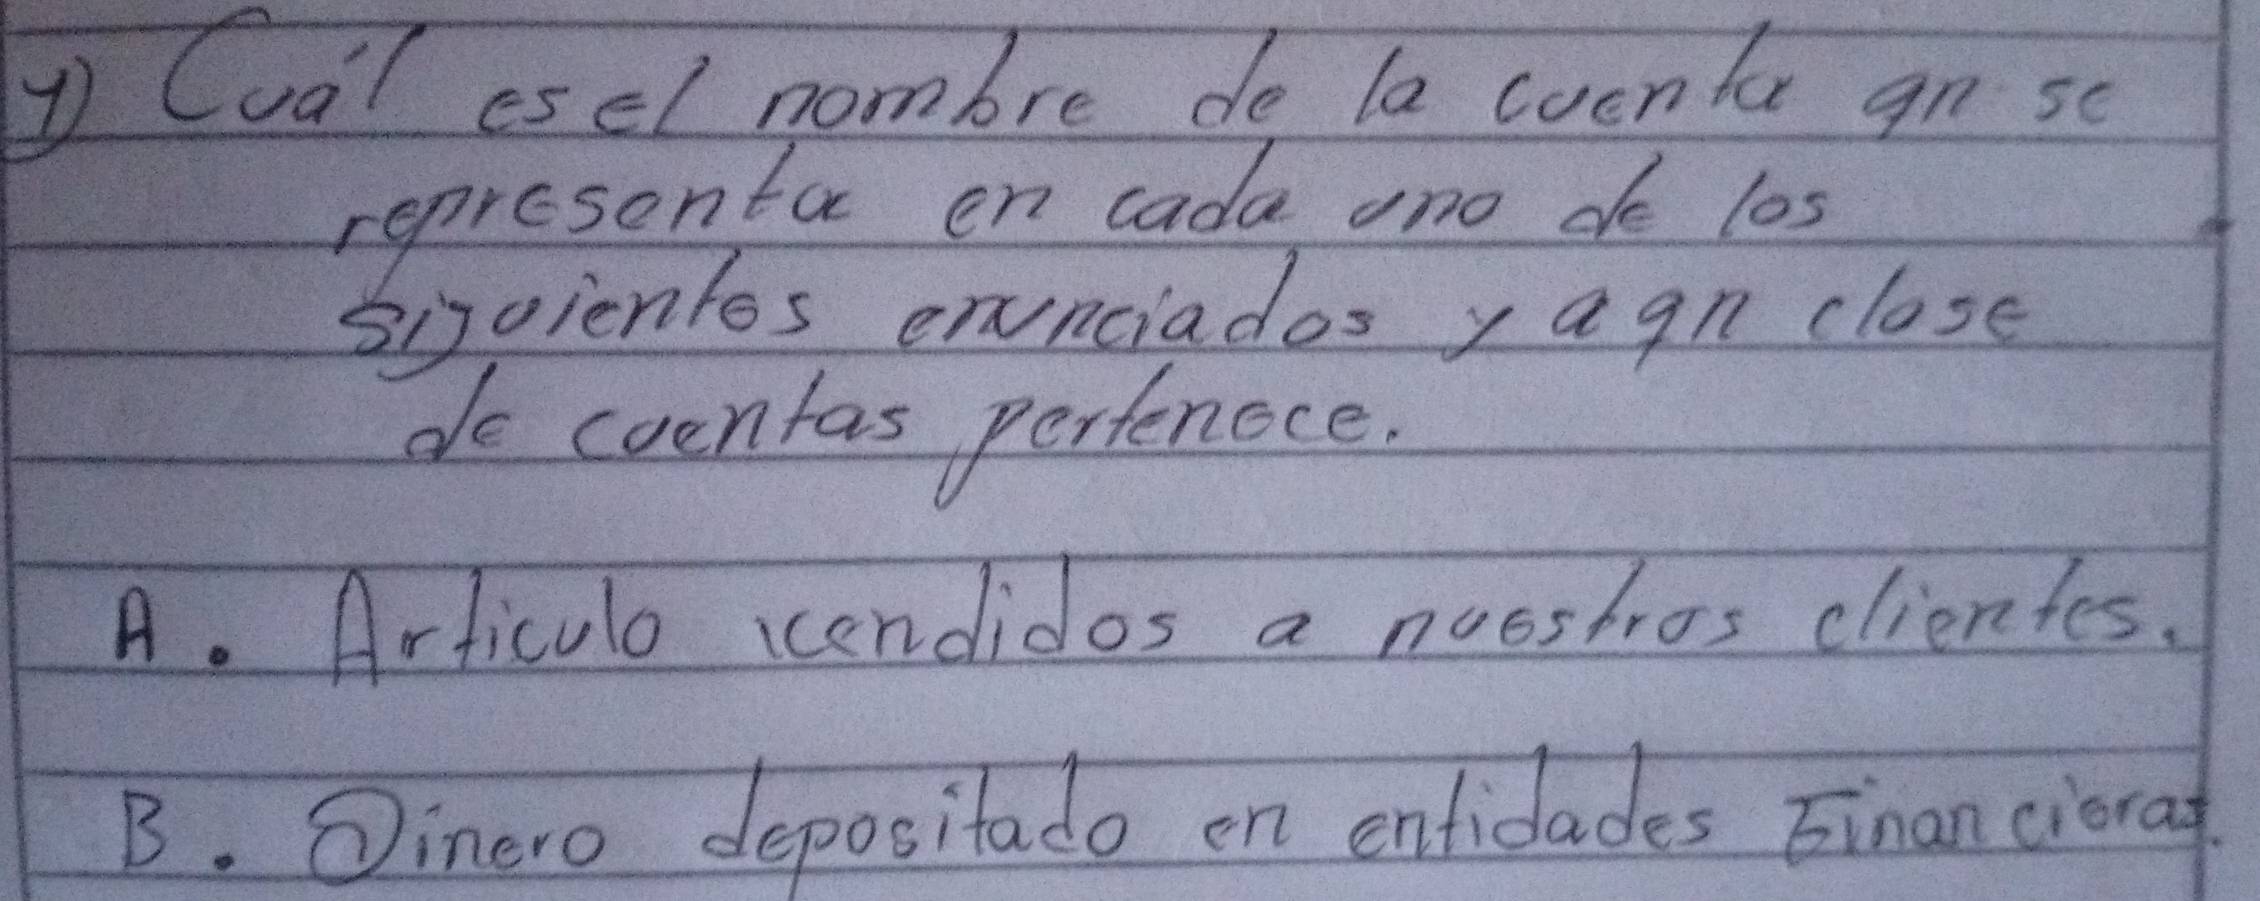 1) Cuál es el nombre de la cuenta qn se
representa en cada uno de los
siguientes enunciados y a qn clase
de cuentas pertenece.
A. Articulo vendidos a nuestros clientes.
B. Dinero depositado en entidades Financieras.